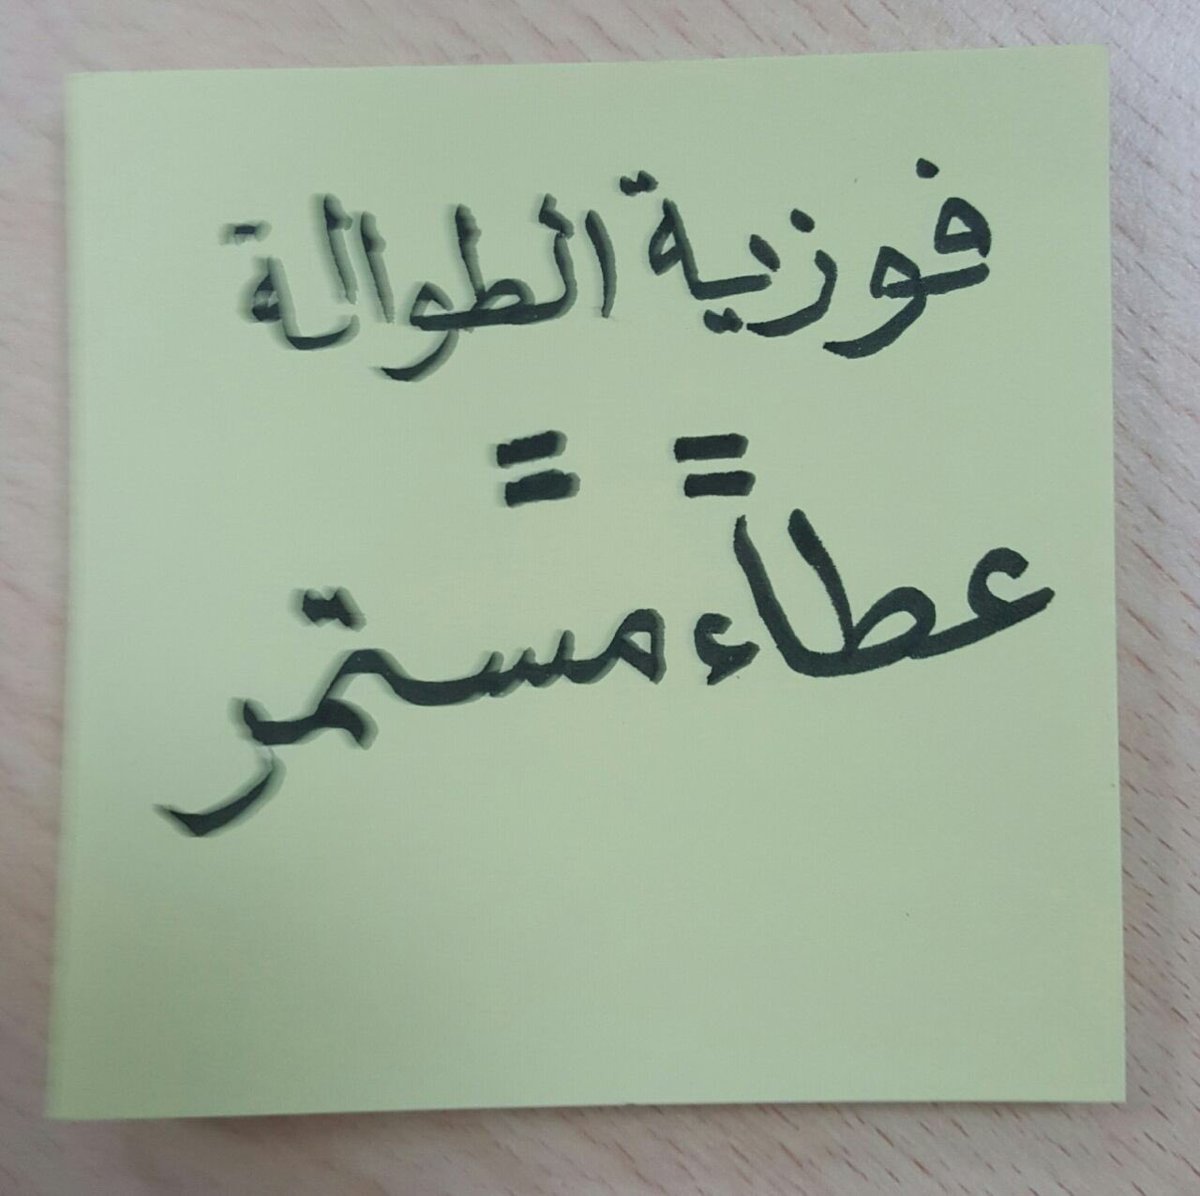 فوزية الطوالة
= =
عطاء مستمر